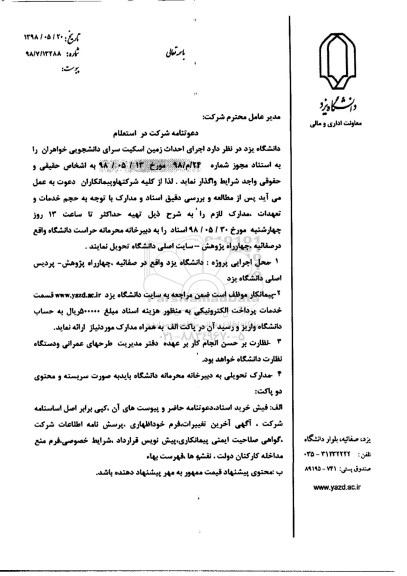 باسمه تعالی
تاریخ: ۱۳۹۸ / ۰۵ / ۲۰
شماره: ۹۸/۷/۱۳۲۸۸
پیوست:
دانشگاه یزد
معاونت اداری و مالی
مدیر عامل محترم شرکت:
دعوتنامه شرکت در استعلام
دانشگاه یزد در نظر دارد اجرای احداث زمین اسکیت سرای دانشجویی خواهران را
به استناد مجوز شماره ۲۴/م/۹۸ مورخ ۱۳ / ۰۵ / ۹۸ به اشخاص حقیقی و
حقوقی واجد شرایط واگذار نماید . لذا از کلیه شرکتهاوپیمانکاران دعوت به عمل
می آید پس از مطالعه و بررسی دقیق اسناد و مدارک با توجه به حجم خدمات و
تعهدات ،مدارک لازم را به شرح ذیل تهیه حداکثر تا ساعت ۱۳ روز
چهارشنبه مورخ ۳۰ / ۰۵ / ۹۸ اسناد را به دبیرخانه محرمانه حراست دانشگاه واقع
درصفائیه ،چهارراه پژوهش –سایت اصلی دانشگاه تحویل نمایند .
۱ -محل اجرایی پروژه : دانشگاه یزد واقع در صفائیه ،چهارراه پژوهش- پردیس
اصلی دانشگاه یزد
۲-پیمانکار موظف است ضمن مراجعه به سایت دانشگاه یزد www.yazd.ac.ir قسمت
خدمات پرداخت الکترونیکی به منظور هزینه اسناد مبلغ ۵۰۰۰۰۰ریال به حساب
دانشگاه واریز و رسید آن در پاکت الف به همراه مدارک موردنیاز ارائه نماید.
۳ -نظارت بر حسن انجام کار بر عهده دفتر مدیریت طرحهای عمرانی ودستگاه
نظارت دانشگاه خواهد بود.
۴ -مدارک تحویلی به دبیرخانه محرمانه دانشگاه بایدبه صورت سربسته و محتوی
دو پاکت:
الف: فیش خرید اسناد،دعوتنامه حاضر و پیوست های آن ،کپی برابر اصل اساسنامه
شرکت ، آگهی آخرین تغییرات،فرم خوداظهاری ،پرسش نامه اطلاعات شرکت
،گواهی صلاحیت ایمنی پیمانکاری،پیش نویس قرارداد ،شرایط خصوصی،فرم منع
مداخله کارکنان دولت ، نقشه ها ،فهرست بهاء
ب :محتوی پیشنهاد قیمت ممهور به مهر پیشنهاد دهنده باشد.
یزد، صفائیه، بلوار دانشگاه
تلفن: ۳۱۲۳۲۲۲۲ - ۰۳۵
صندوق پستی: ۷۴۱ - ۸۹۱۹۵
www.yazd.ac.ir